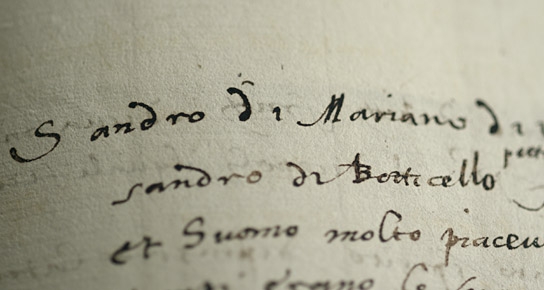 Sandro di Mariano di
sandro di Botticello
et Suomo molto piaceu
erano